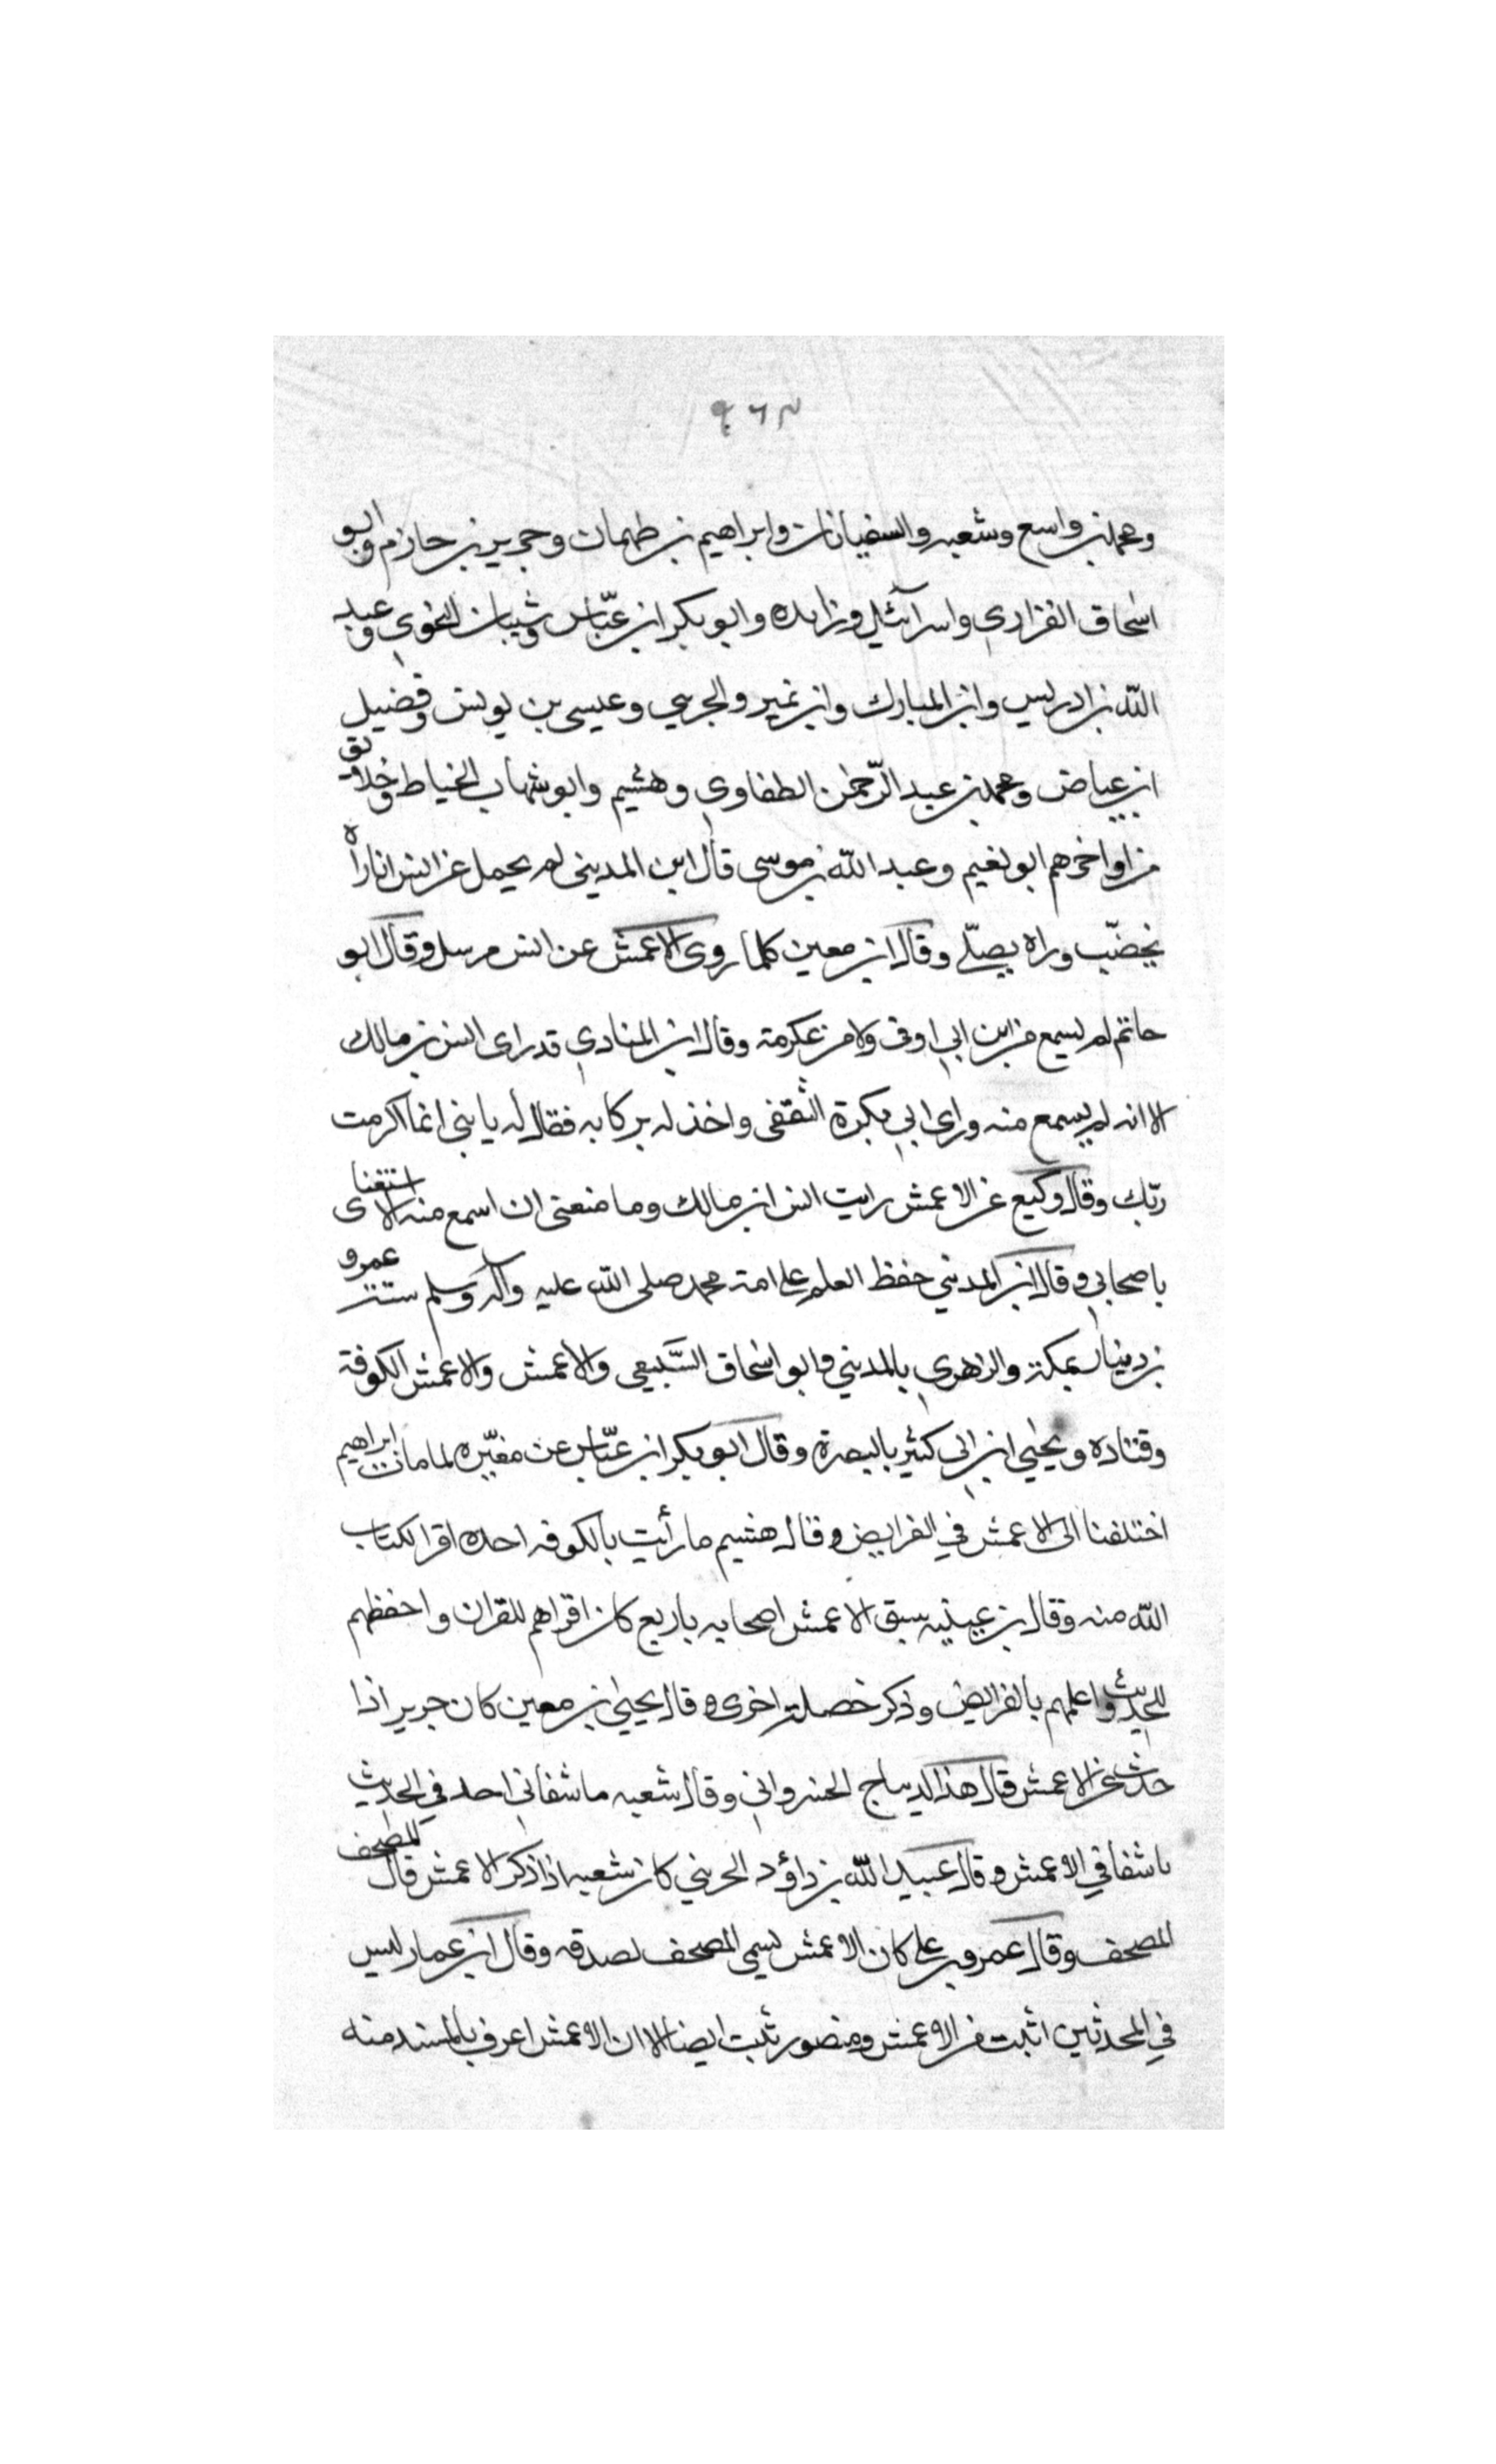 ٩٦٣
ومحمد بن واسع وشعبه والسفيانان وابراهيم بن طهمان وجرير بن حازم وابو
اسحاق الفزاري واسرآئيل وزايده وابو بكر ابن عبّاس وشيبان النحوي وعبد
الله بن ادريس وابن المبارك وابن نمير والجريبي وعيسى بن يونس وفضيل
ابن عياض ومحمد بن عبد الرّحمن الطفاوي وهشيم وابو شهاب الخياط وخلايق
من اواخرهم ابو نعيم وعبد الله بن موسى قال ابن المديني لم يحمل عن انس انما راه
يخضّب وراه يصلّي وقال ابن معين كلما روى الاعمش عن انس مرسل وقال ابو
حاتم لم يسمع من ابن ابي اوفى ولا من عكرمة وقال ابن المنادي قد راى انس بن مالك
الا انه لم يسمع منه وراى ابي بكرة الثقفى واخذ له بركابه فقال له يا بني انما اكرمت
ربّك وقال وكيع عن الاعمش رايت انس ابن مالك وما منعنى ان اسمع منه الا استغناى
باصحابي وقال ابن المديني حفظ العلم على امة محمد صلى الله عليه وآله وسلم ستة عمرو
بن دينار بمكة والزهري بالمديني وابو اسحاق السّبيعي والاعمش والاعمش الكوفة
وقتاده ويحيي ابن ابى كثير بالبصرة وقال ابو بكر ابن عبّاس عن مغيّره لما مات ابراهيم
اختلفنا الى الاعمش في الفرايض وقال هشيم ما رأيت بالكوفه احده اقرا لكتاب
الله منه وقال بن عيينه سبق الاعمش اصحابه باربع كان اقراهم للقران واحفظهم
للحديث واعلمهم بالفرايض وذكر خصلة اخرى وقال يحيي بن معين كان جرير اذا
حدث عن الاعمش قال هذا الديباج الخسرواني وقال شعبه ما شفانى احد في الحديث
ما شفاني الاعمش وقال عبيد الله بن داؤد الخريني كان شعبه اذا ذكر الاعمش قال المصحف
المصحف وقال عمرو بن علي كان الاعمش يسمى المصحف لصدقه وقال ابن عمار ليس
في المحدثين اثبت من الاعمش ومنصور ثبت ايضا الا ان الاعمش اعرف بالمسند منه